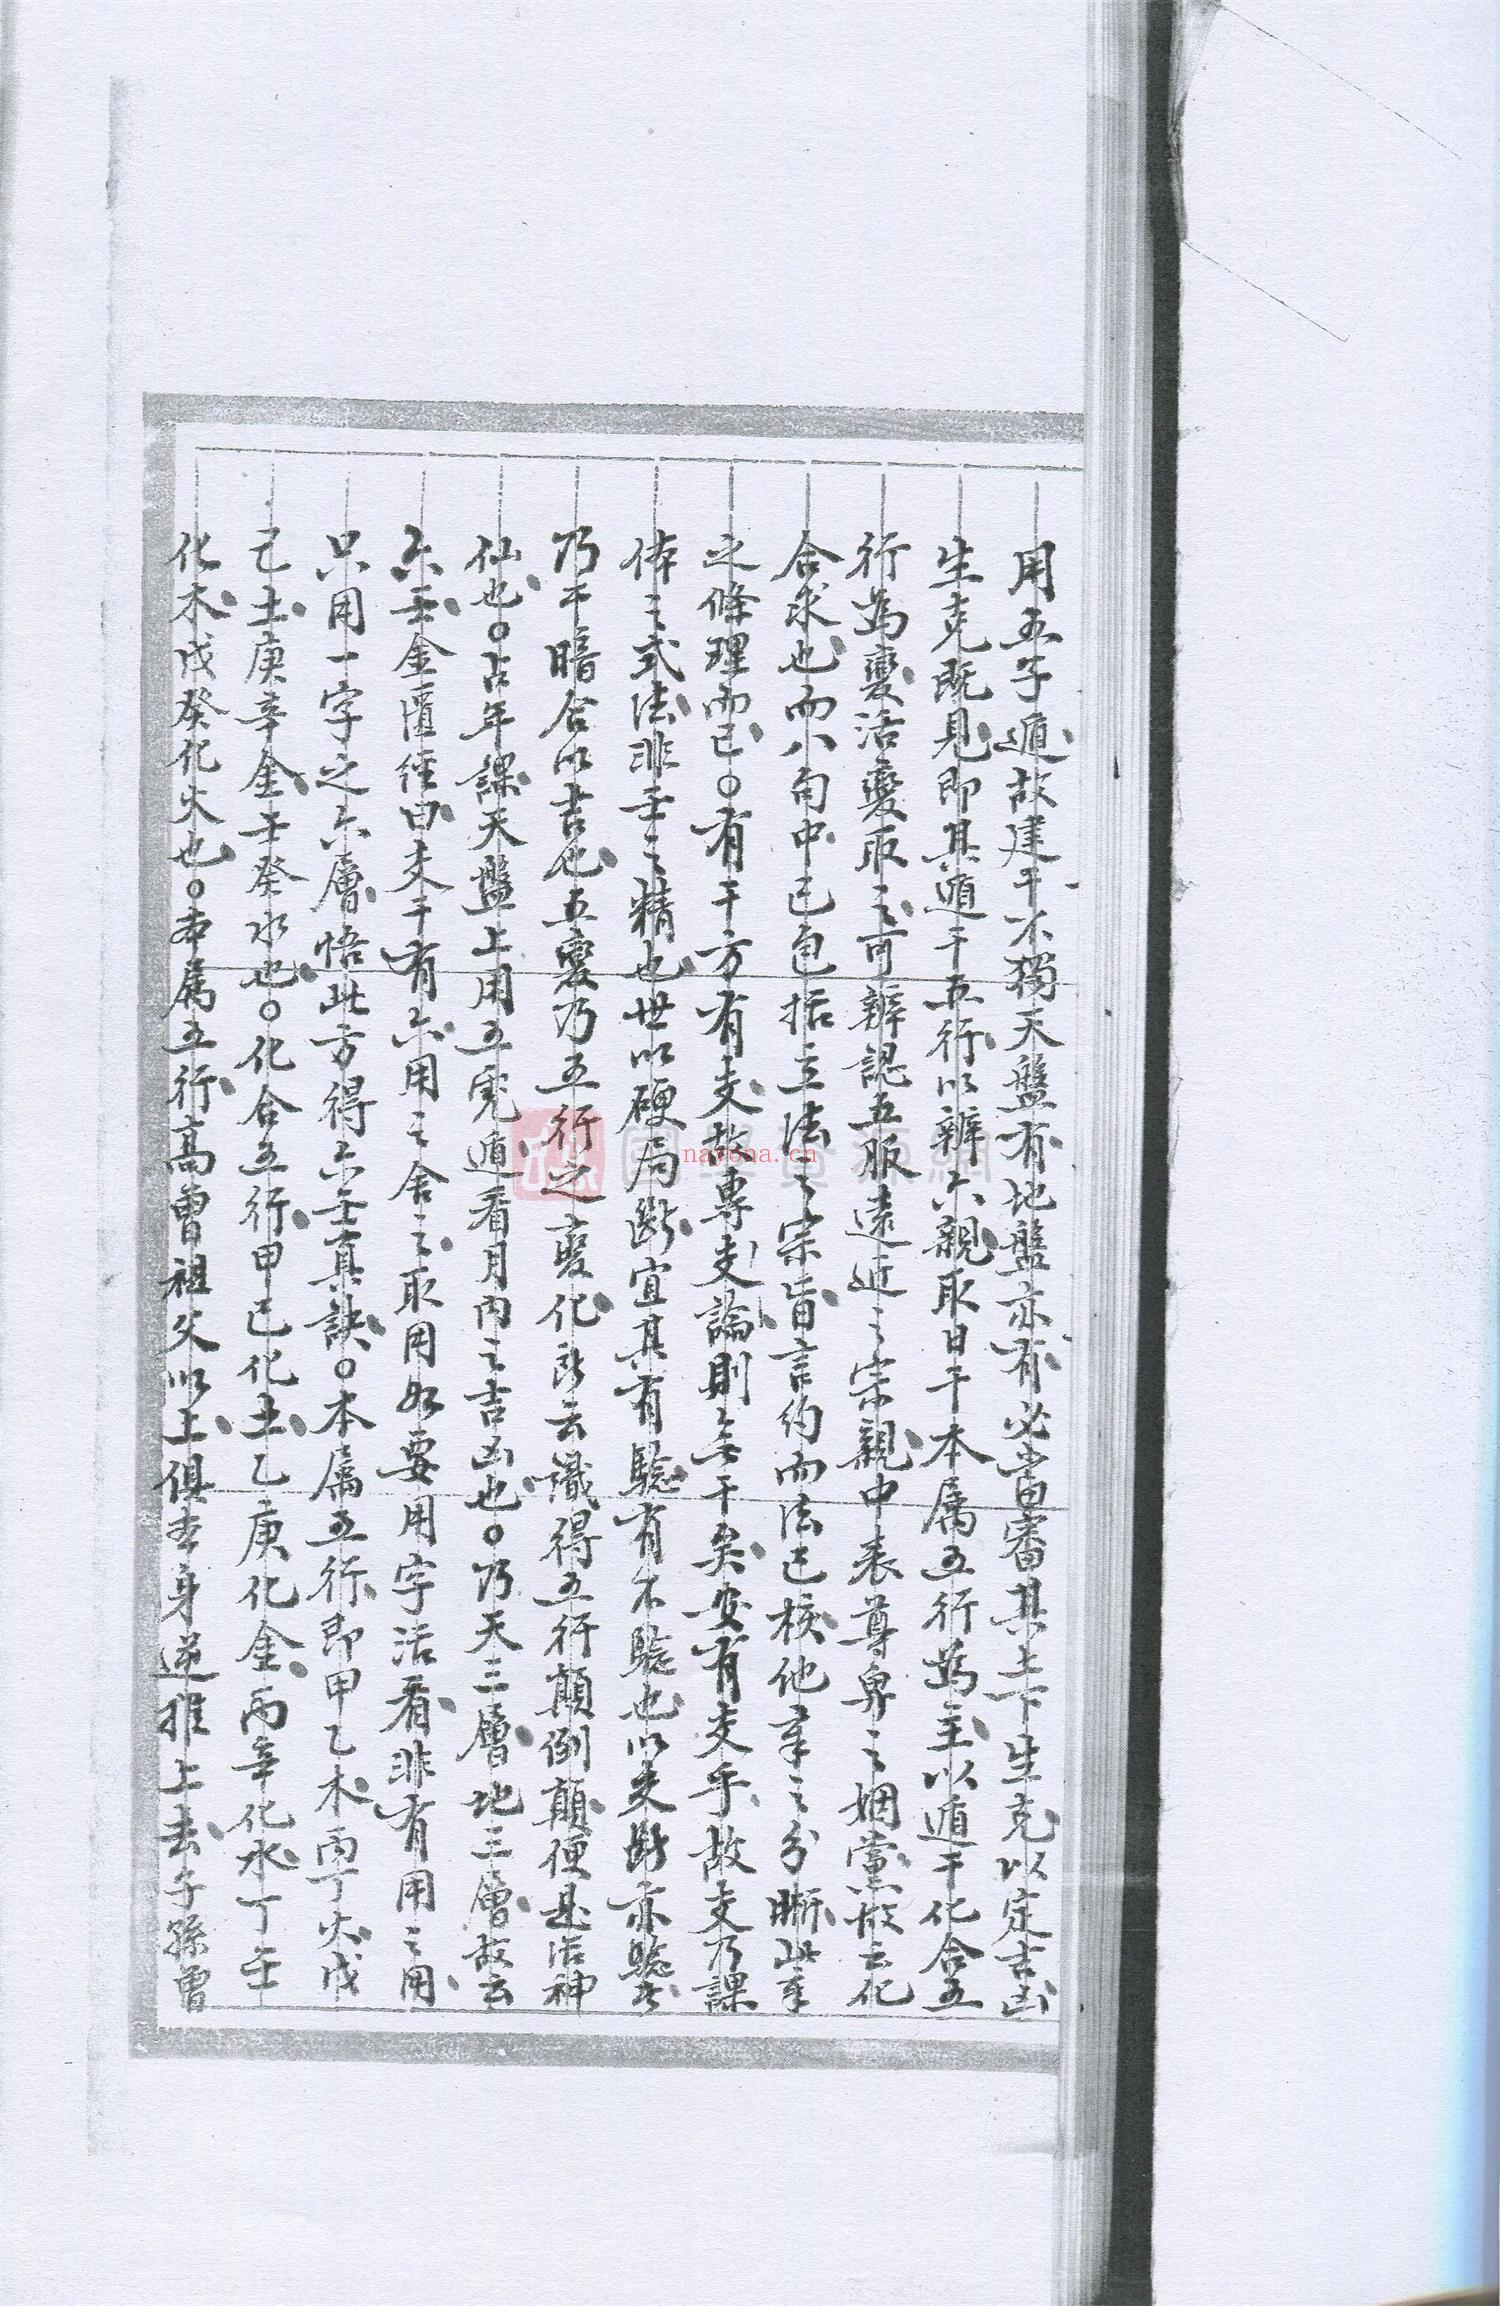 用五子遁故建干不獨天盤有地盤亦有必當審其上下生克以定吉凶
生克既見即其遁干五行以辨六親取日干本属五行為主以遁干化合五
行為變活變取之可辨認五服遠近之宗親中表尊卑之姻黨故云化
合求也而八句中已包括立法之宗旨言約而法已核他章之分晰此章
之條理而已○有干方有支故專支論則無干矣安有支乎故支乃課
体之式法非壬之精也世以硬局斷宜其有騐有不騐也以支斷亦騐者
乃干暗合以吉也五變乃五行之變化所云識得五行顛倒顛便是活神
仙也○占年課天盤上用五虎遁看月内之吉凶也○乃天三層地三層故云
六壬金匱經曰支干有六用之舍之取用如要用字活看非有用之用
只用一字之六層悟此方得六壬真訣○本属五行即甲乙木丙丁火戊
己土庚辛金壬癸水也○化合五行甲己化土乙庚化金丙辛化水丁壬
化木戊癸化火也○本属五行高曾祖父以上俱本身逆推上去子孫曾
國學資源網
nayona.cn